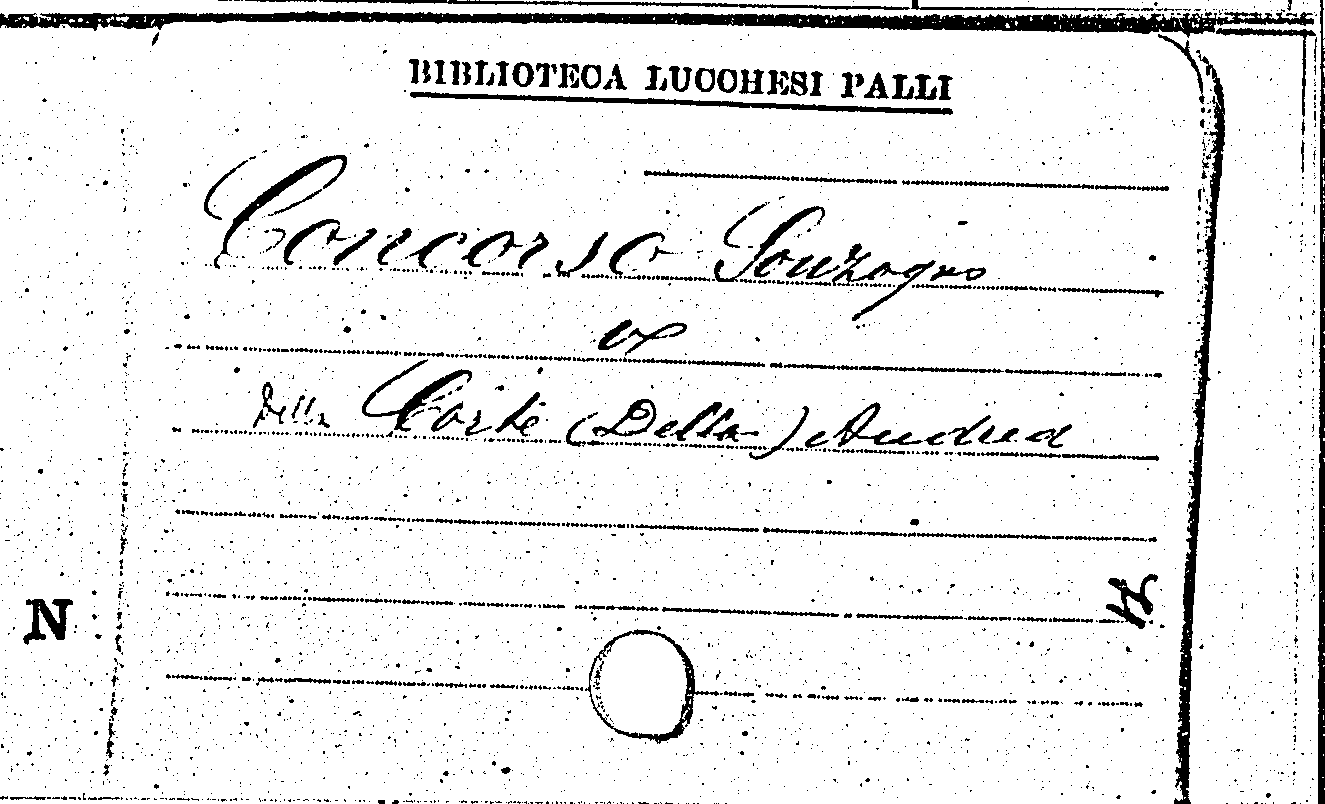 BIBLIOTECA LUCCHESI PALLI
Concorso Sonzogno
Della Corte (Della) Andrea
N